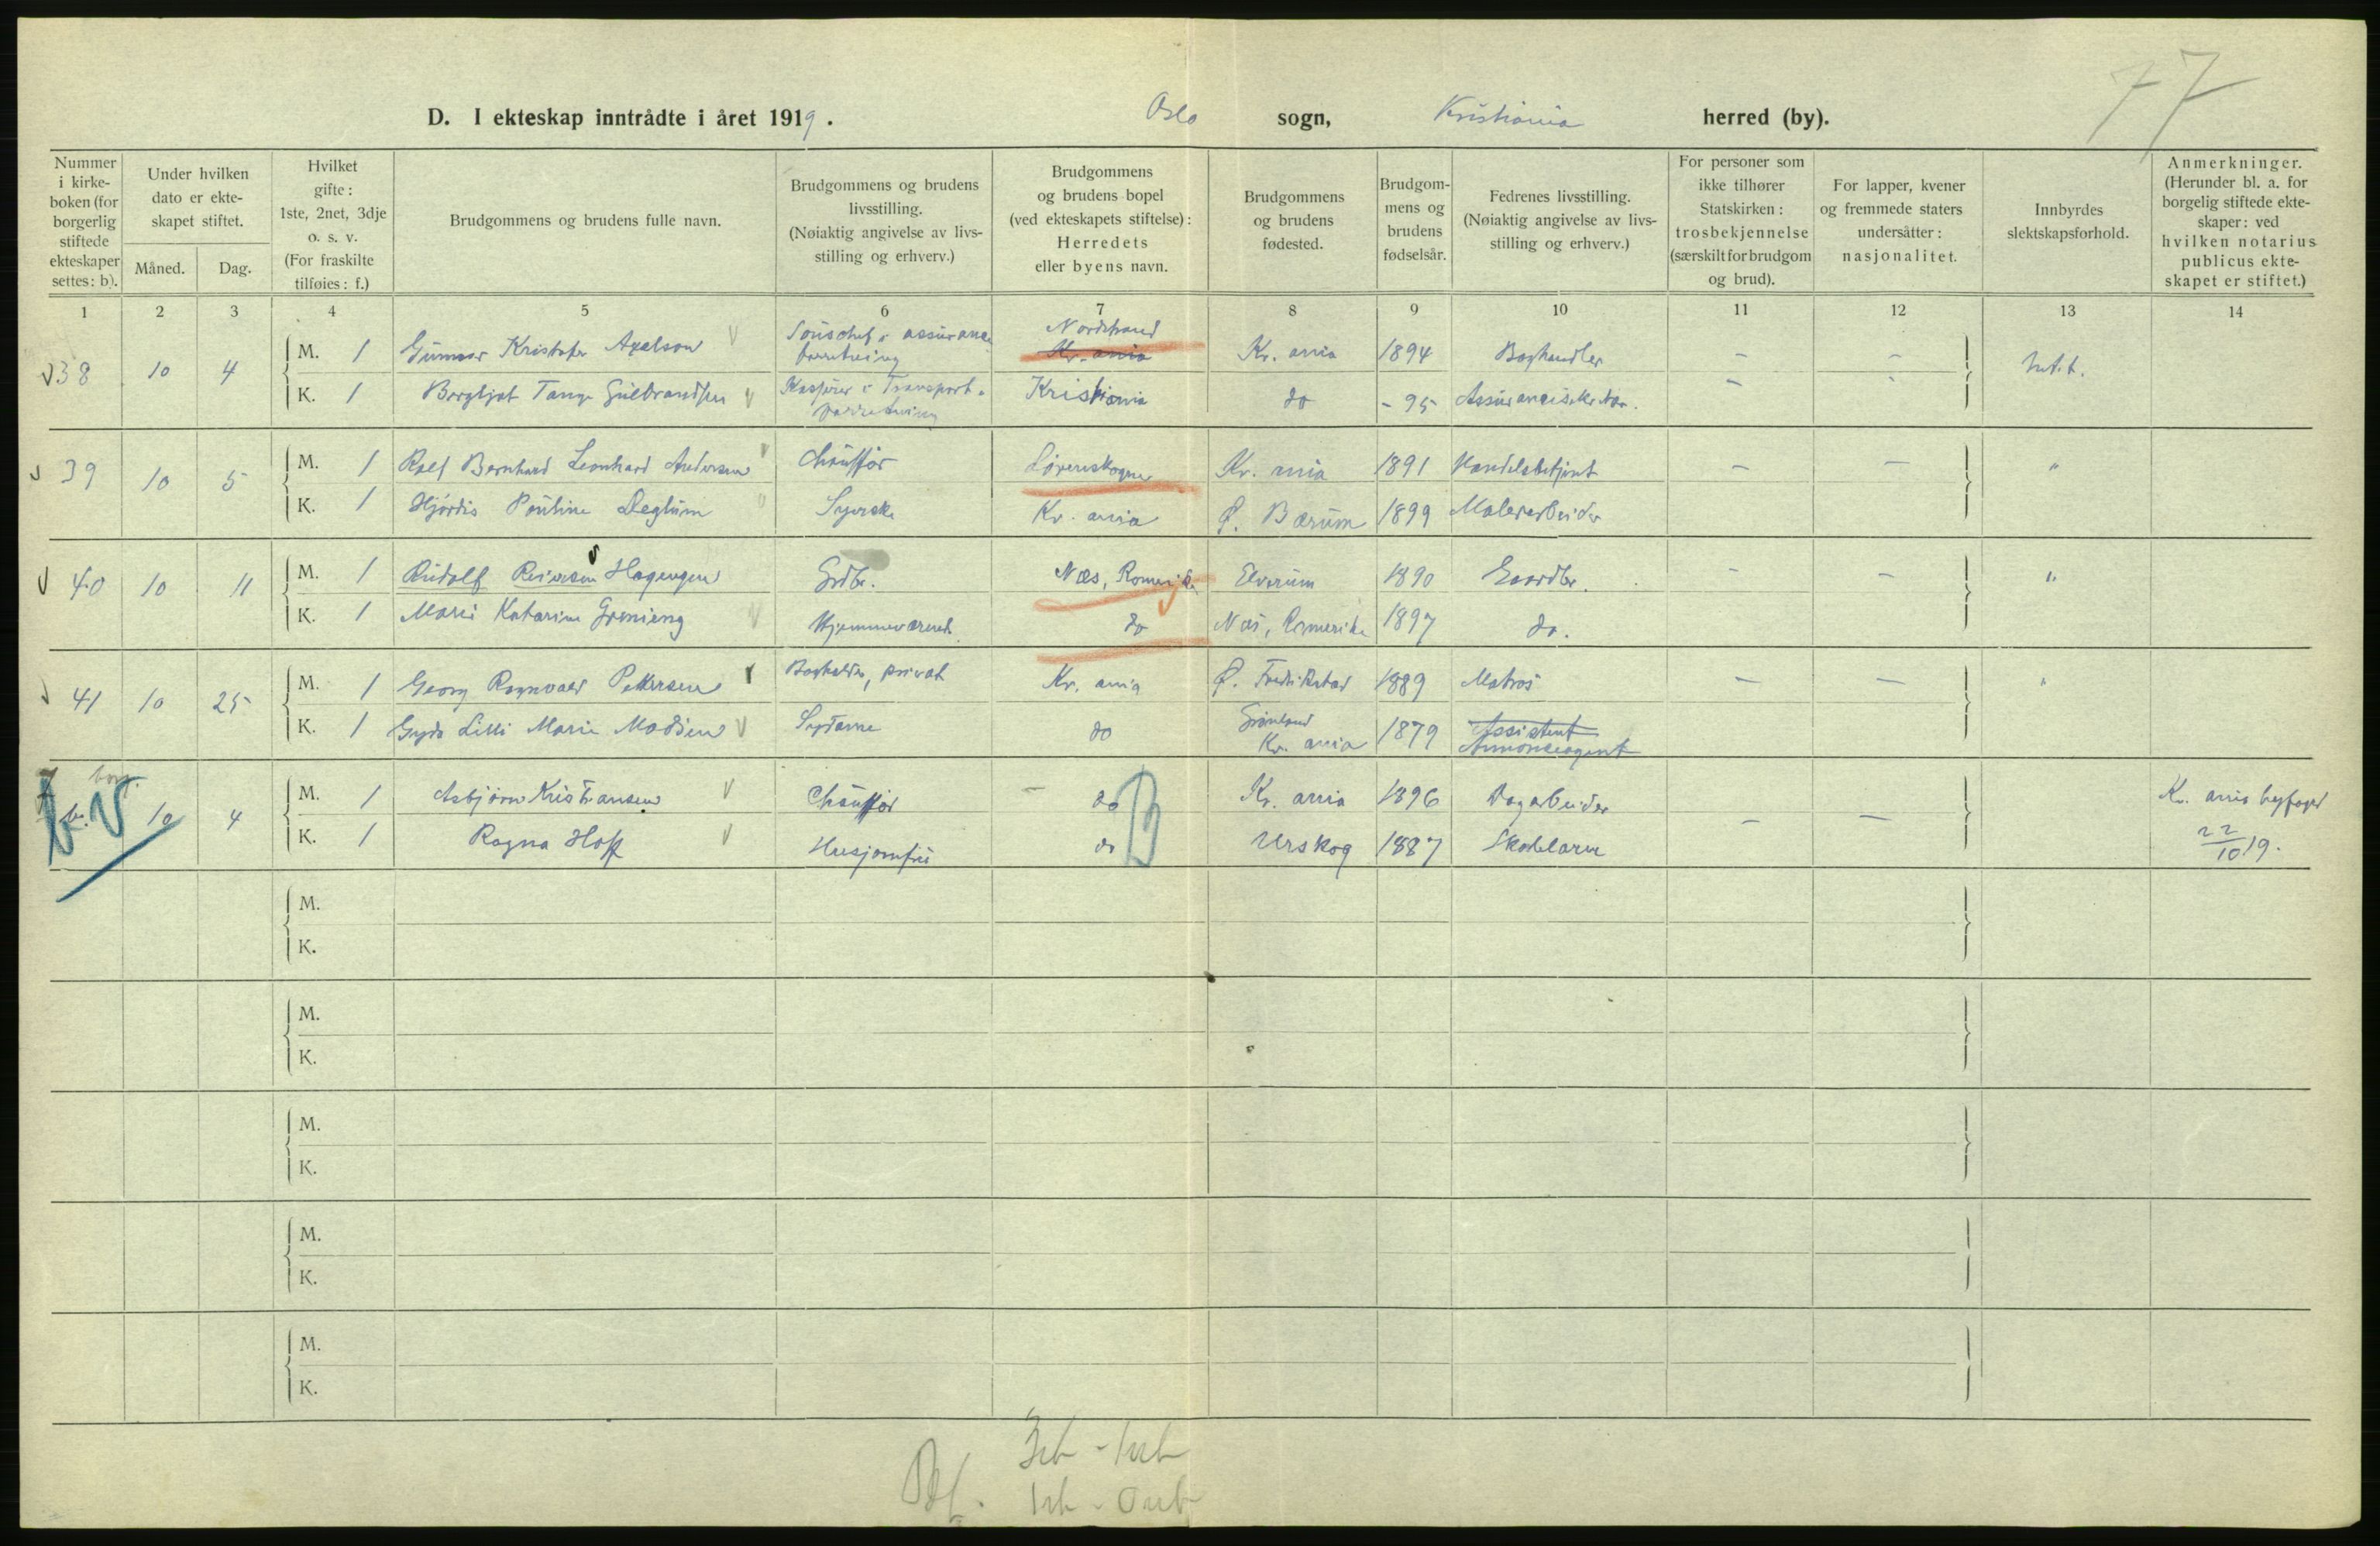 77
D. I ekteskap inntrådte i året 1919. Oslo sogn, Kristiania herred (by).
Nummer i kirkeboken (for borgerlig stiftede ekteskaper settes: b).
Under hvilken dato er ekteskapet stiftet.
Måned. Dag.
Hvilket gifte: 1ste, 2net, 3dje o. s. v. (For fraskilte tilføies: f.)
Brudgommens og brudens fulle navn.
Brudgommens og brudens livsstilling. (Nøiaktig angivelse av livsstilling og erhverv.)
Brudgommens og brudens bopel (ved ekteskapets stiftelse): Herredets eller byens navn.
Brudgommens og brudens fødested.
Brudgommens og brudens fødselsår.
Fedrenes livsstilling. (Nøiaktig angivelse av livsstilling og erhverv.)
For personer som ikke tilhører Statskirken: trosbekjennelse (særskilt for brudgom og brud).
For lapper, kvener og fremmede staters undersåtter: nasjonalitet.
Innbyrdes slektskapsforhold.
Anmerkninger. (Herunder bl. a. for borgelig stiftede ekteskaper: ved hvilken notarius publicus ekteskapet er stiftet.)
1 2 3 4 5 6 7 8 9 10 11 12 13 14
38 10 4 M. 1 Gunnar Kristofer Axelson assurance forretning Nordstrand Kr. ania Kr. ania 1894 Boghandler - -
K. 1 Borghjot Tange Gulbrandsen Kasserer i Transport- forretning Kristiania do - 95
39 10 5 M. 1 Rolf Bernhard Leonhard Andersen Chauffør Lørenskogen Kr. ania 1891 Handelsbetjent - - "
K. 1 Hjørdis Pauline Deglum Syerske Kr. ania Ø. Bærum 1899 Malerarbeider
40 10 11 M. 1 Rudolf Reiersen Hagengen Grdbr. Næs, Romerike Elverum 1890 Gaardbr. - - "
K. 1 Marie Katarina Grenieng Hjemmeværend. do Næs, Romerike 1897 do.
41 10 25 M. 1 Georg Ragnvald Pettersen Bogholder, privat Kr. ania Ø. Fredrikstad 1889 Matros - - "
K. 1 Gyda Lilli Marie Madsen Sydame do Grønland Kr. ania 1879 Assistent Annonseagent
borg. b. 10 4 M. 1 Asbjørn Kristiansen Chauffør - do B Kr. ania 1896 Dagarbeider - - Kr. ania byfoged
K. 1 Ragna Hoff Husjomfru do Urskog 1887 Skolelærer 22/10 19.
M.
K.
M.
K.
M.
K.
M.
K.
M.
K.